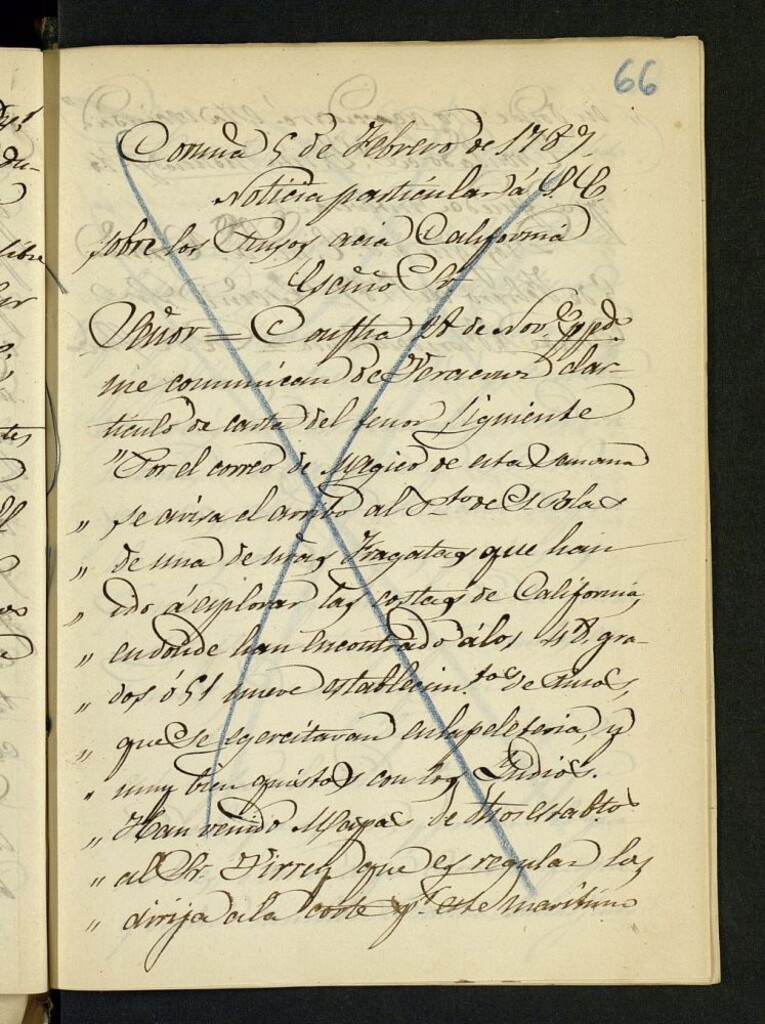 66
Coruña 5 de Febrero de 1789.
Noticia particular á S. E.
sobre los Rusos acia California
Escmo Sr
Señor = Con fha 28 de Novᵉ ppdo
me comunican de Veracruz el ar-
tículo de carta del tenor siguiente
"Por el correo de Magico de esta Semana
" se avisa el arribo al Pto de S. Blas
de una de nras Fragatas que han
" ido á esplorar las costas de California,
" en donde han encontrado á los 48, gra-
" dos ó 51 nueve establecim.tos de rusos,
" que se egercitavan en la peleteria, y
" muy bien quistos con los Indios.
" Han venido Mapas de dhos establtos
" al Sr. Virrey que es regular los
" dirija a la corte pr. este maritimo